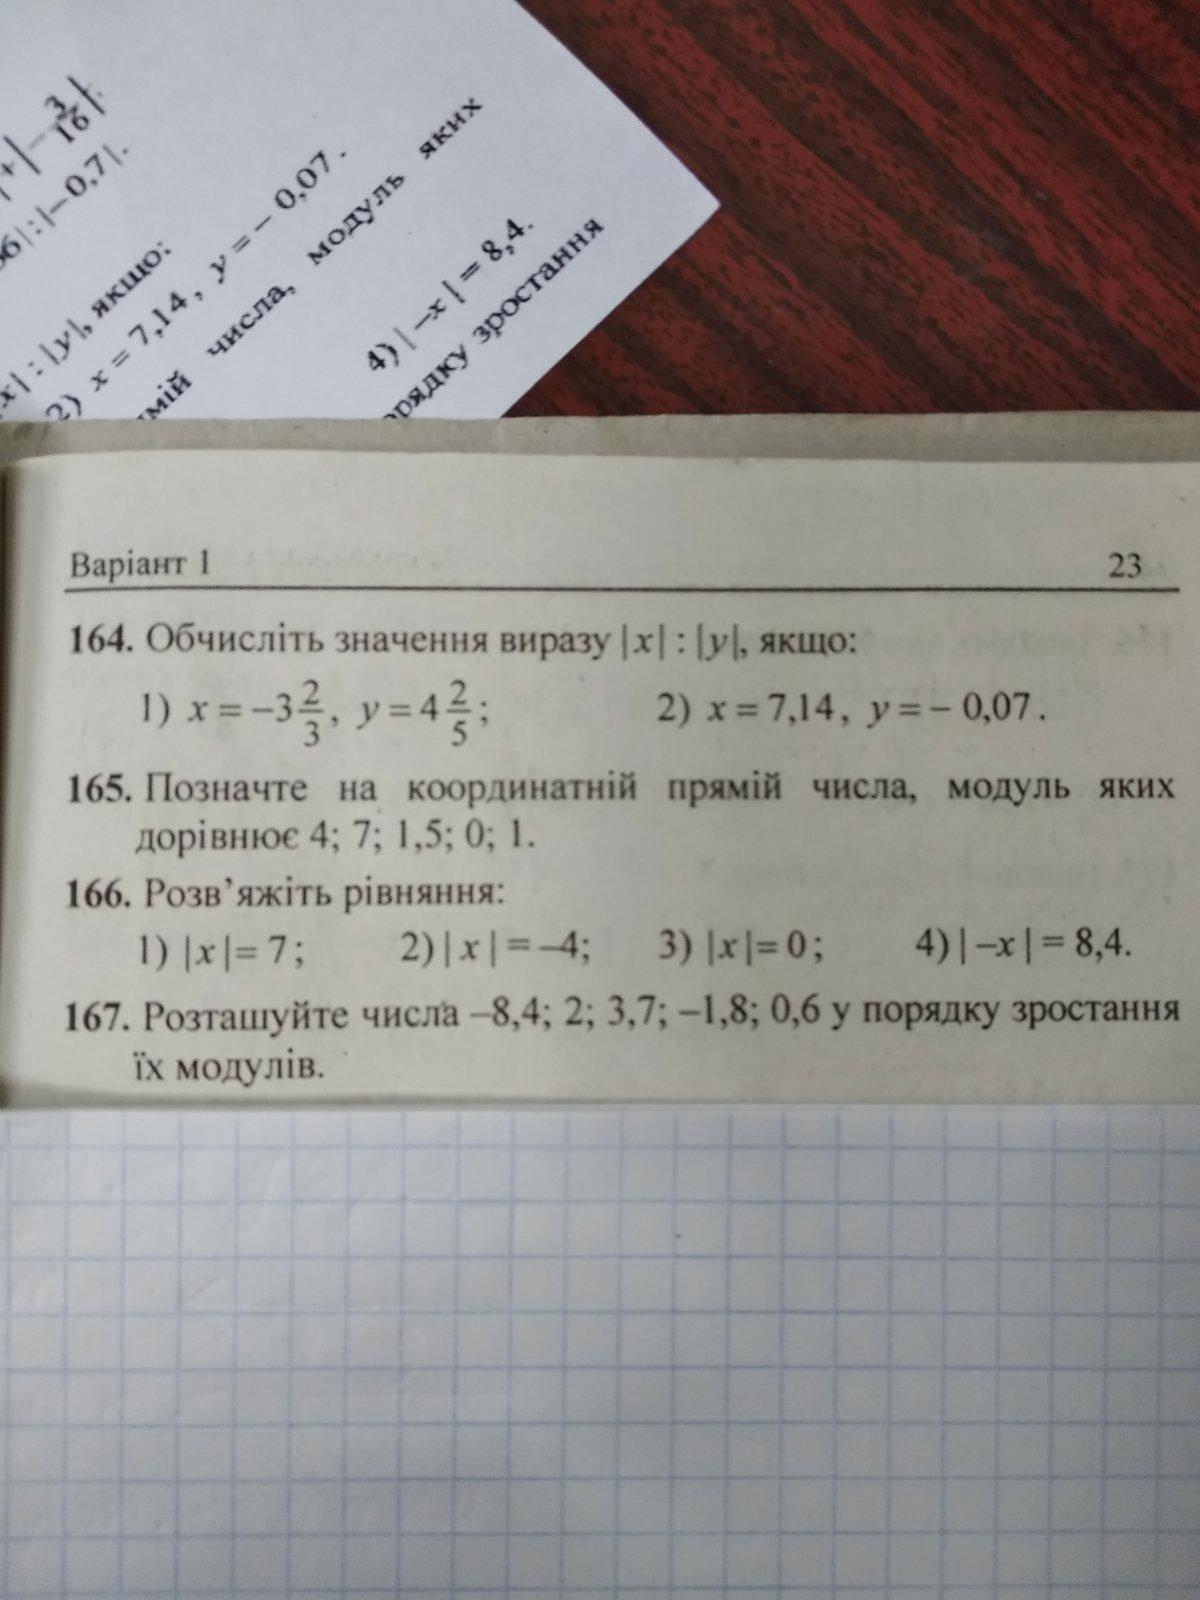 |+|-3/16|.
6|:|-0,7|.
x| : |y|, якщо:
2) x = 7,14, y = - 0,07.
мій числа, модуль яких
4) | -x | = 8,4.
орядку зростання
Варіант 1 23
164. Обчисліть значення виразу |x| : |y|, якщо:
1) x = -3 2/3, y = 4 2/5; 2) x = 7,14, y = - 0,07.
165. Позначте на координатній прямій числа, модуль яких
дорівнює 4; 7; 1,5; 0; 1.
166. Розв’яжіть рівняння:
1) |x| = 7; 2) | x | = –4; 3) |x| = 0; 4) | –x | = 8,4.
167. Розташуйте числа –8,4; 2; 3,7; –1,8; 0,6 у порядку зростання
їх модулів.